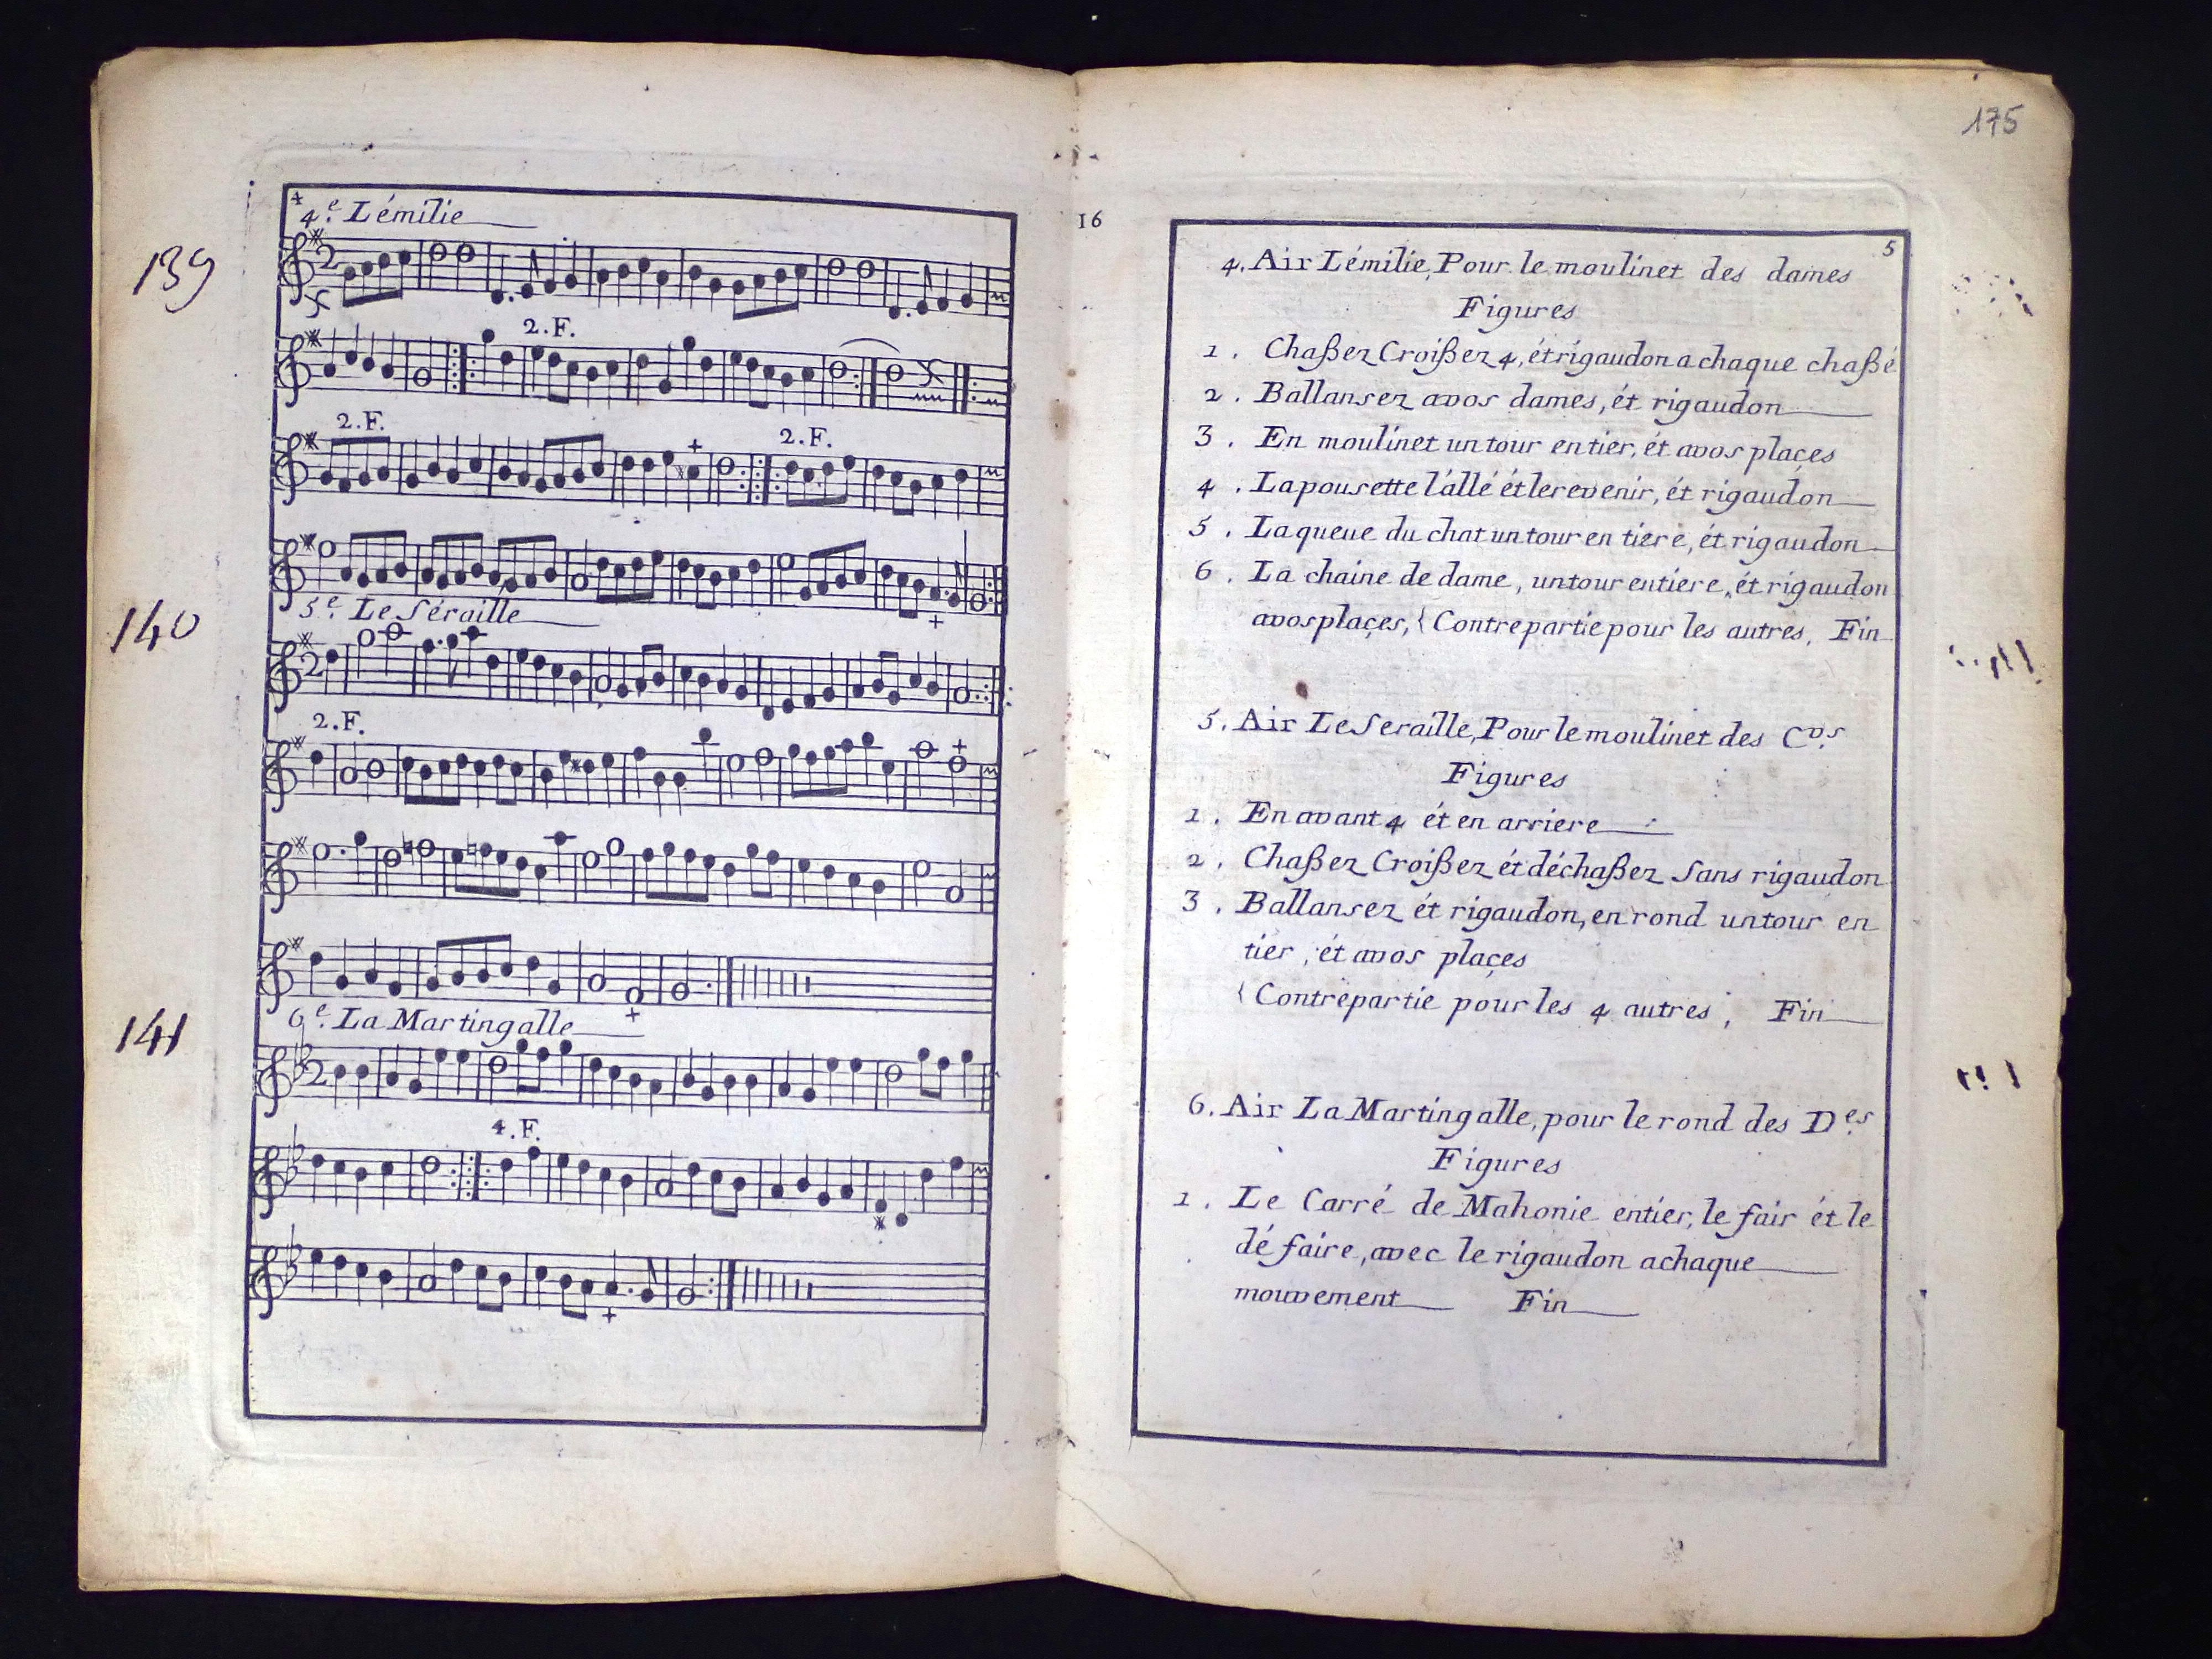 4
4.e Lémilie
139
2
2.F.
2.F.
2.F.
5.e Le Séraille
140
2
2.F.
6.e La Martingalle
141
2
4.F.
16
175
5
4. Air Lémilie, Pour le moulinet des dames
Figures
1. Chaßez Croißez 4, ét rigaudon a chaque chaßé
2. Ballansez avos dames, ét rigaudon
3. En moulinet un tour entier, ét avos plaçes
4. La pousette l'állé ét lerevenir, ét rigaudon
5. La queue du chat un tour en tiere, ét rigaudon
6. La chaine de dame, un tour entiere, ét rigaudon
avosplaçes, { Contrepartie pour les autres, Fin
5. Air Le Seraille, Pour le moulinet des C.vs
Figures
1. En avant 4 ét en arriere
2. Chaßez Croißez ét déchaßez Sans rigaudon
3. Ballansez ét rigaudon, en rond un tour en
tier, ét avos plaçes
{ Contrepartie pour les 4 autres, Fin
6. Air La Martingalle, pour le rond des D.es
Figures
1. Le Carré de Mahonie entier, le fair ét le
dé faire, avec le rigaudon achaque
mouvement Fin